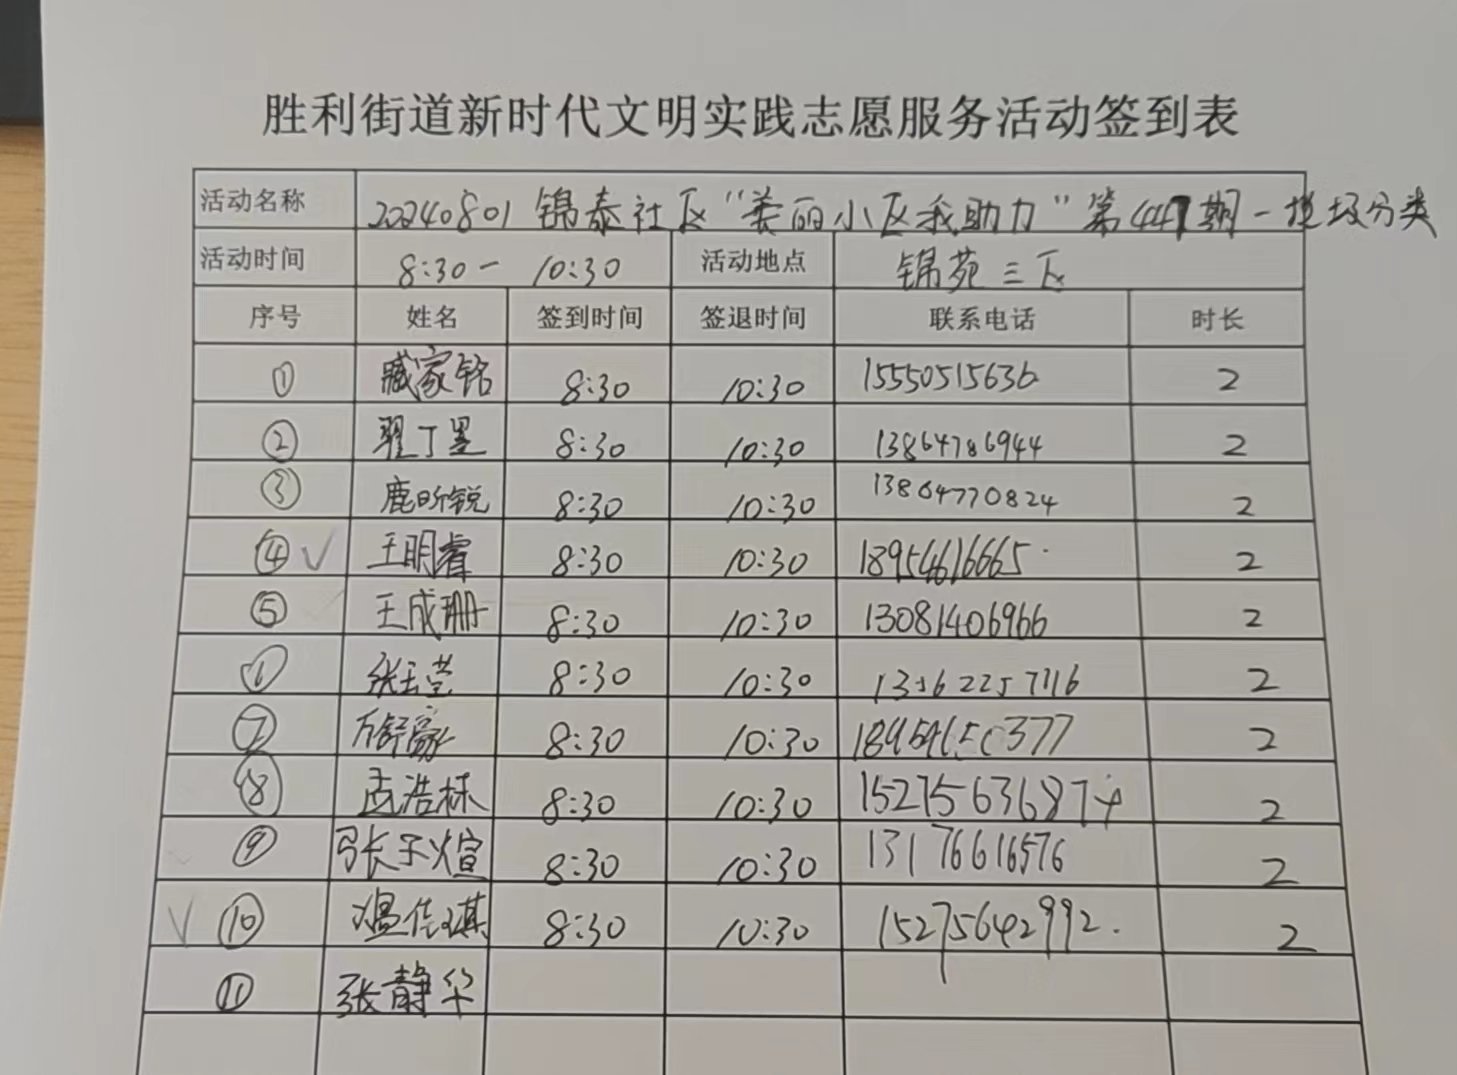 胜利街道新时代文明实践志愿服务活动签到表
活动名称 20240801 锦泰社区“美丽小区我助力”第447期-垃圾分类
活动时间 8:30- 10:30 活动地点 锦苑三区
序号 姓名 签到时间 签退时间 联系电话 时长
① 臧家铭 8:30 10:30 15550515636 2
② 翟丁墨 8:30 10:30 13864786944 2
③ 鹿昕锐 8:30 10:30 13864770824 2
④ √ 王明睿 8:30 10:30 18954616665 2
⑤ 王成珊 8:30 10:30 13081406966 2
张玉莹 8:30 10:30 2
⑦ 8:30 10:30 2
⑧ 孟浩栋 8:30 10:30 2
⑨ 张子煊 8:30 10:30 13176616576 2
√ ⑩ 温佳琪 8:30 10:30 15275642992. 2
⑪ 张静华